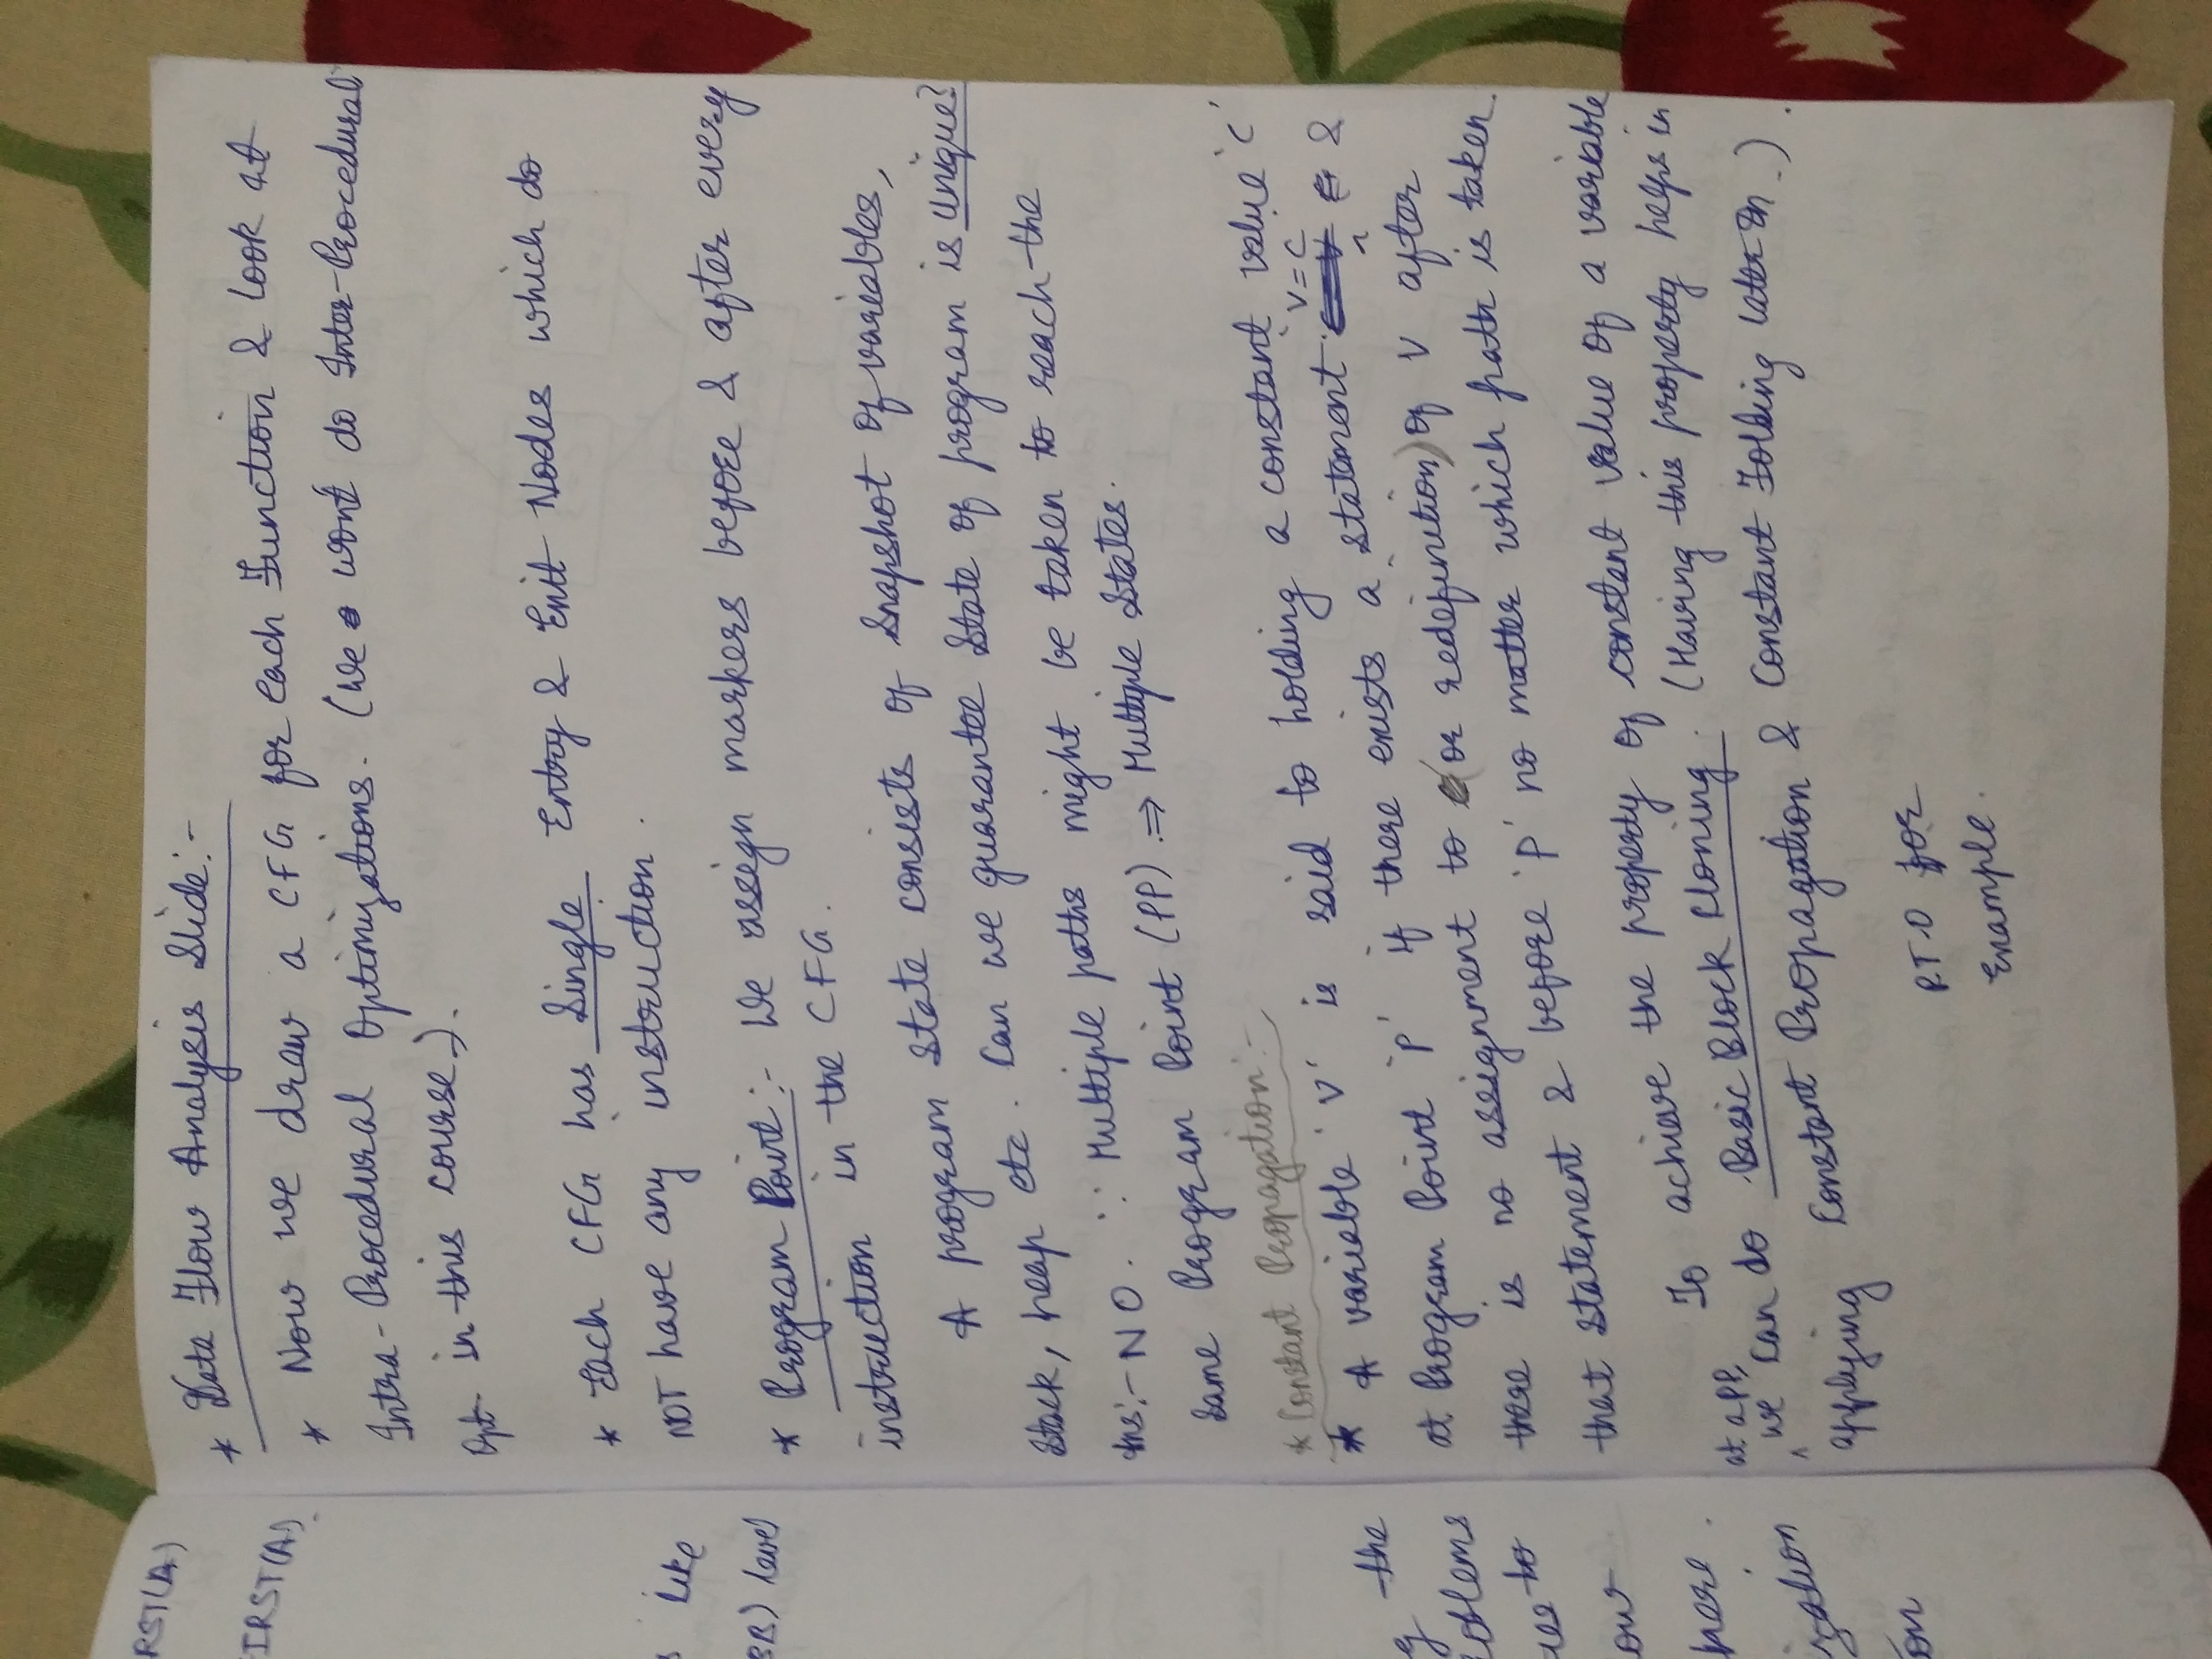 RST(A)
FIRST(A)
s like
BB) level
g the
oblems
ues to
ow
here.
ization
on
* Data Flow Analysis Slide:-
* Now we draw a CFG for each Function & look at
Intra-Procedural Optimizations. (We won't do Inter-Procedural
Opt. in this course.).
* Each CFG has Single Entry & Exit Nodes which do
NOT have any instruction.
* Program Point:- We assign markers before & after every
instruction in the CFG.
A program state consists of snapshot of variables,
stack, heap etc. Can we guarantee state of program is unique?
Ans:- NO. ∵ Multiple paths might be taken to reach the
same Program Point (PP) ⇒ Multiple States.
* Constant Propagation:-
* A variable 'V' is said to holding a constant value 'C'
at Program Point 'P' if there exists a statement V=C &
there is no assignment to (or redefinition) of V after
that statement & before 'P' no matter which path is taken.
To achieve the property of constant value of a variable
at a PP, we can do Basic Block Cloning. (Having this property helps in
applying Constant Propagation & Constant Folding later on.).
P.T.O for
Example.